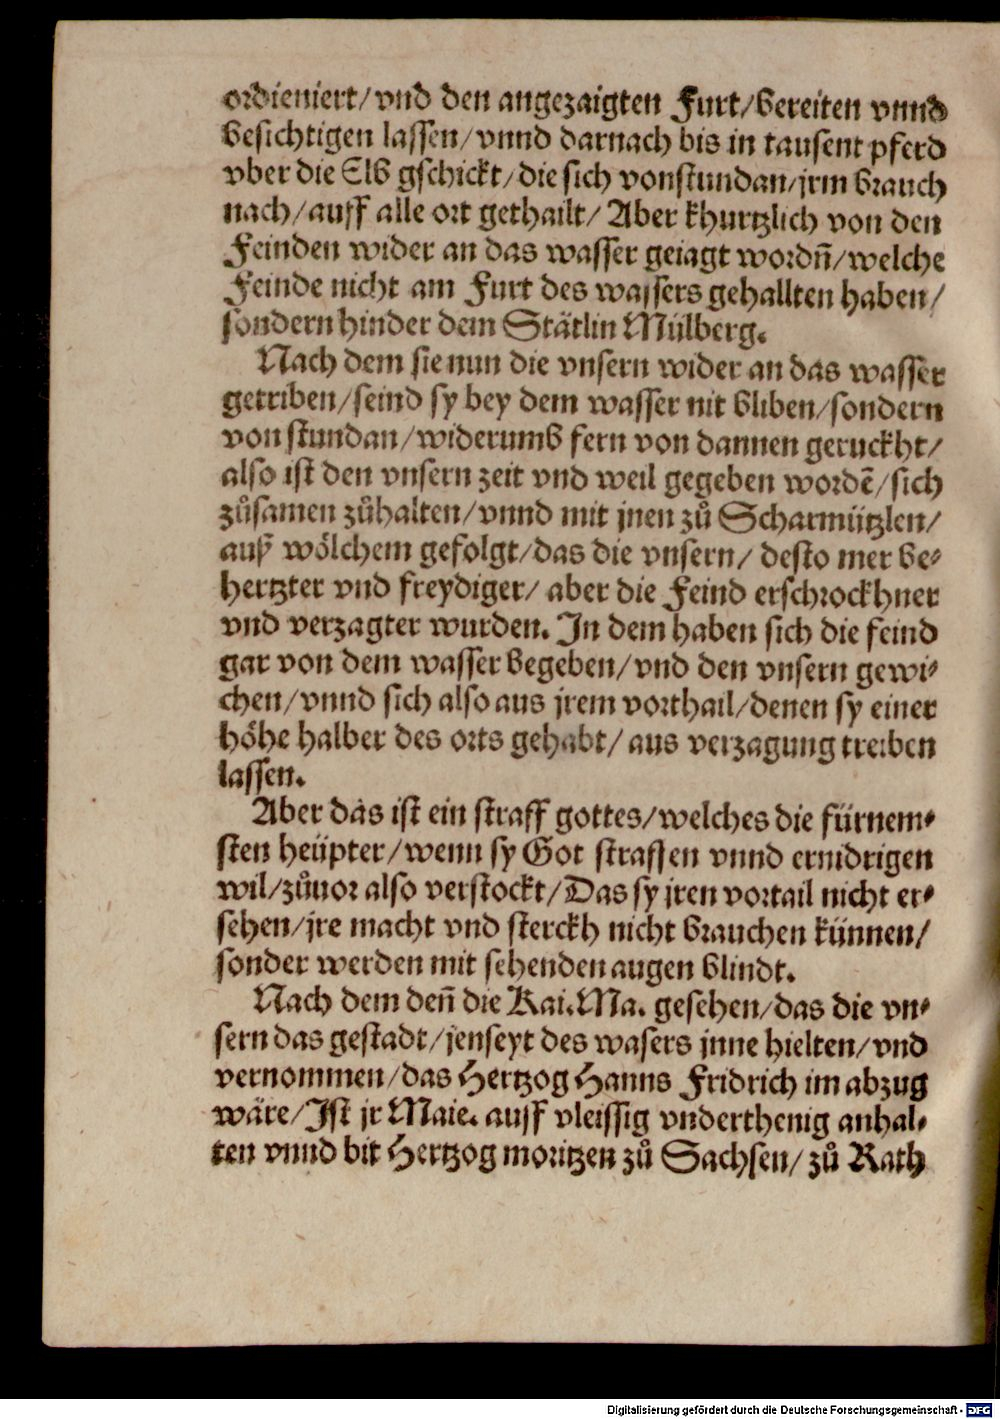 ordieniert/vnd den angezaigten Furt/bereiten vnnd
besichtigen lassen/vnnd darnach bis in tausent pferd
vber die Elb gschickt/die sich vonstundan/jrm brauch
nach/auff alle ort gethailt/ Aber khurtzlich von den
Feinden wider an das wasser geiagt wordñ/welche
Feinde nicht am Furt des wassers gehallten haben/
sondern hinder dem Stätlin Mülberg.
Nach dem sie nun die vnsern wider an das wasser
getriben/seind sy bey dem wasser nit bliben/sondern
von stundan/widerumb fern von dannen geruckht/
also ist den vnsern zeit vnd weil gegeben wordẽ/sich
zůsamen zůhalten/vnnd mit jnen zů Scharmützlen/
auß wölchem gefolgt/das die vnsern/ desto mer be-
hertzter vnd freydiger/ aber die Feind erschrockhner
vnd verzagter wurden. In dem haben sich die feind
gar von dem wasser begeben/vnd den vnsern gewi-
chen/vnnd sich also aus jrem vorthail/denen sy einer
höhe halber des orts gehabt/ aus verzagung treiben
lassen.
Aber das ist ein straff gottes/welches die fürnem-
sten heüpter/wenn sy Got straffen vnnd ernidrigen
wil/zůuor also verstockt/Das sy jren vortail nicht er-
sehen/jre macht vnd sterckh nicht brauchen künnen/
sonder werden mit sehenden augen blindt.
Nach dem deñ die Kai.Ma. gesehen/das die vn-
sern das gestadt/jenseyt des wasers jnne hielten/vnd
vernommen/das Hertzog Hanns Fridrich im abzug
wäre/Ist jr Maie. auff vleissig vnderthenig anhal-
ten vnnd bit Hertzog moritzen zů Sachsen/ zů Rath
Digitalisierung gefördert durch die Deutsche Forschungsgemeinschaft - DFG